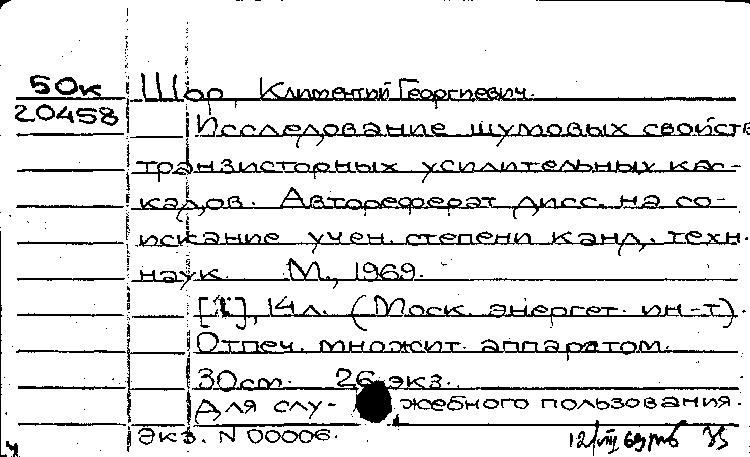 50к Шор, Климентий Георгиевич.
20458 Исследование шумовых свойств
транзисторных усилительных кас-
кадов. Автореферат дисс. на со-
искание учен. степени канд. техн.
наук. М., 1969.
[1], 14 л. (Моск. энергет. ин-т).
Отпеч. множит. аппаратом.
30см. 26 экз.
Для слу- жебного пользования.
Экз. N 00006. 12/VIII 69